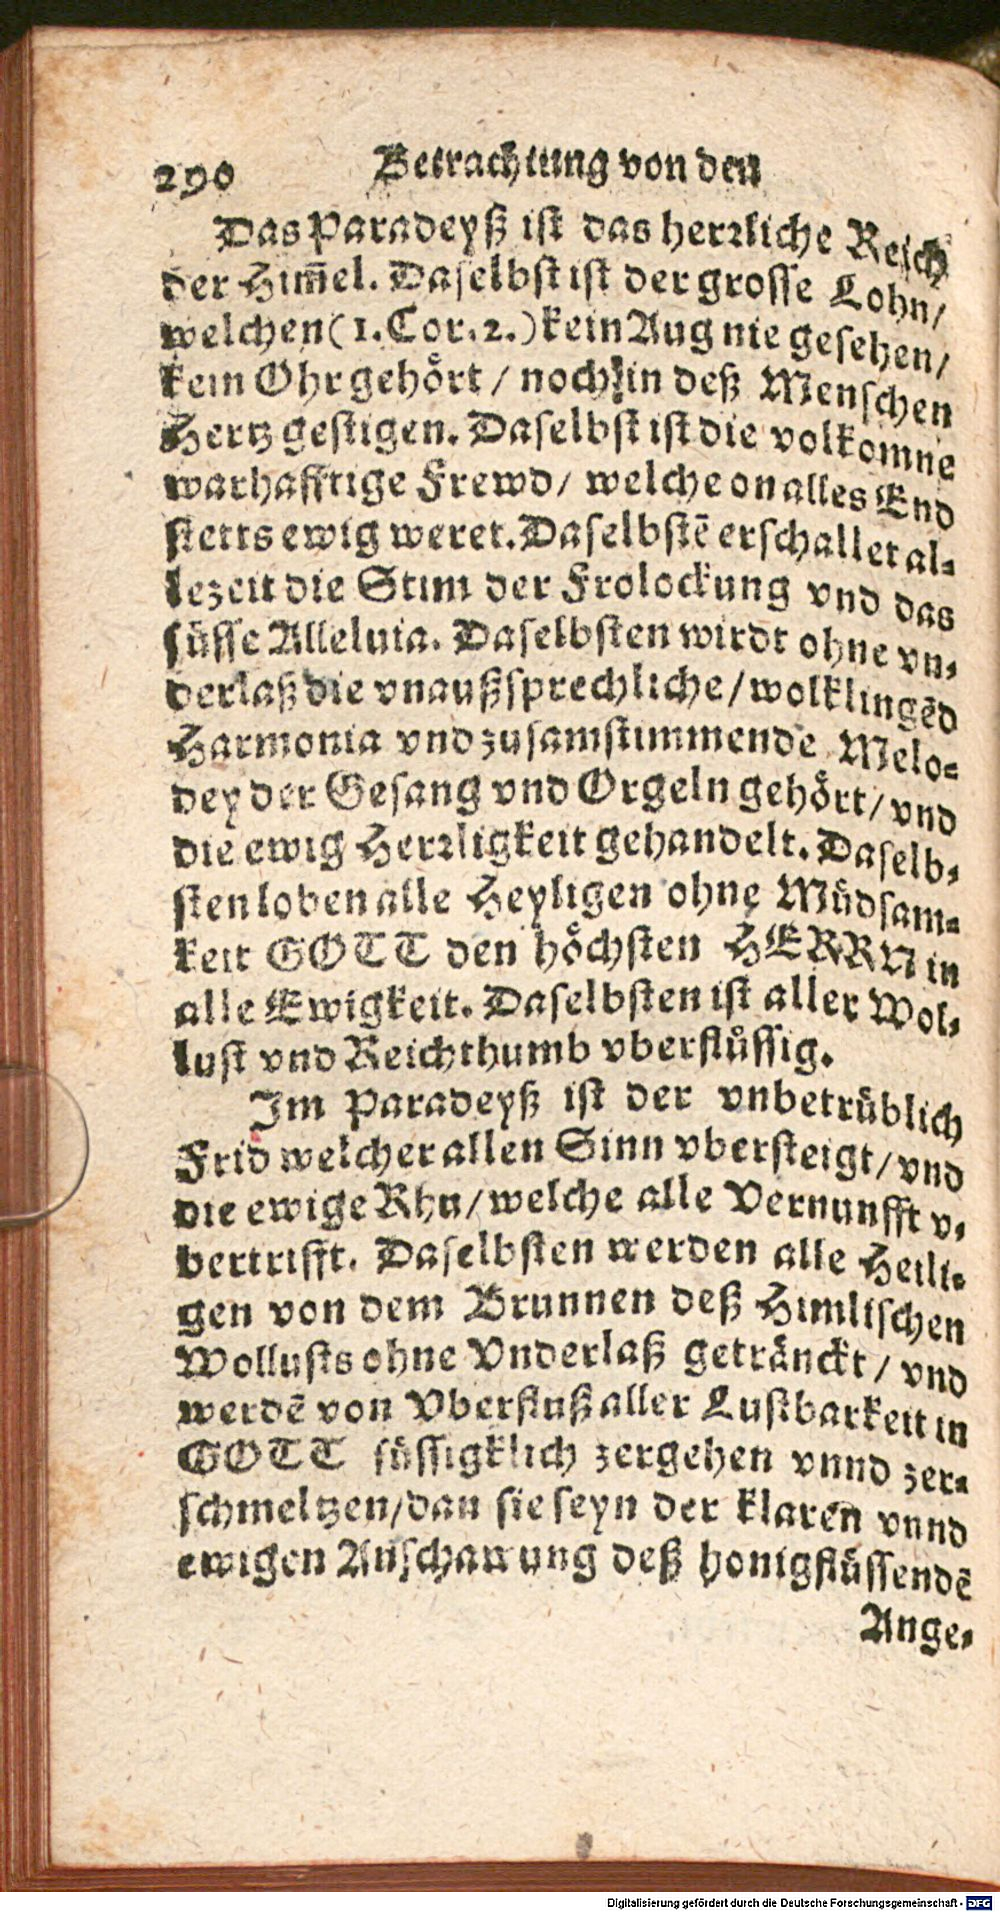 290 Betrachtung von den
Das Paradeyß ist das herꝛliche Reich
der Him̃el. Daselbst ist der grosse Lohn/
welchen (1. Cor. 2.) kein Aug nie gesehen/
kein Ohr gehört / noch in deß Menschen
Hertz gestigen. Daselbst ist die volkomne
warhafftige Frewd/ welche on alles End
stetts ewig weret. Daselbstẽ erschallet al-
lezeit die Stim der Frolockung vnd das
süsse Alleluia. Daselbsten wirdt ohne vn-
derlaß die vnaußsprechliche/wolklingẽd
Harmonia vnd zusamstimmende Melo-
dey der Gesang vnd Orgeln gehört/ vnd
die ewig Herꝛligkeit gehandelt. Daselb-
sten loben alle Heyligen ohne Müdsam-
keit GOTT den höchsten HERRN in
alle Ewigkeit. Daselbsten ist aller Wol-
lust vnd Reichthumb vberflüssig.
Im Paradeyß ist der vnbetrüblich
Frid welcher allen Sinn vbersteigt/ vnd
die ewige Rhu/welche alle Vernunfft v-
bertrifft. Daselbsten werden alle Heili-
gen von dem Brunnen deß Himlischen
Wollusts ohne Vnderlaß getränckt/ vnd
werdẽ von Vberfluß aller Lustbarkeit in
GOTT süssigklich zergehen vnnd zer-
schmeltzen/dan sie seyn der klaren vnnd
ewigen Anschawung deß honigflüssendẽ
Ange-
Digitalisierung gefördert durch die Deutsche Forschungsgemeinschaft - DFG